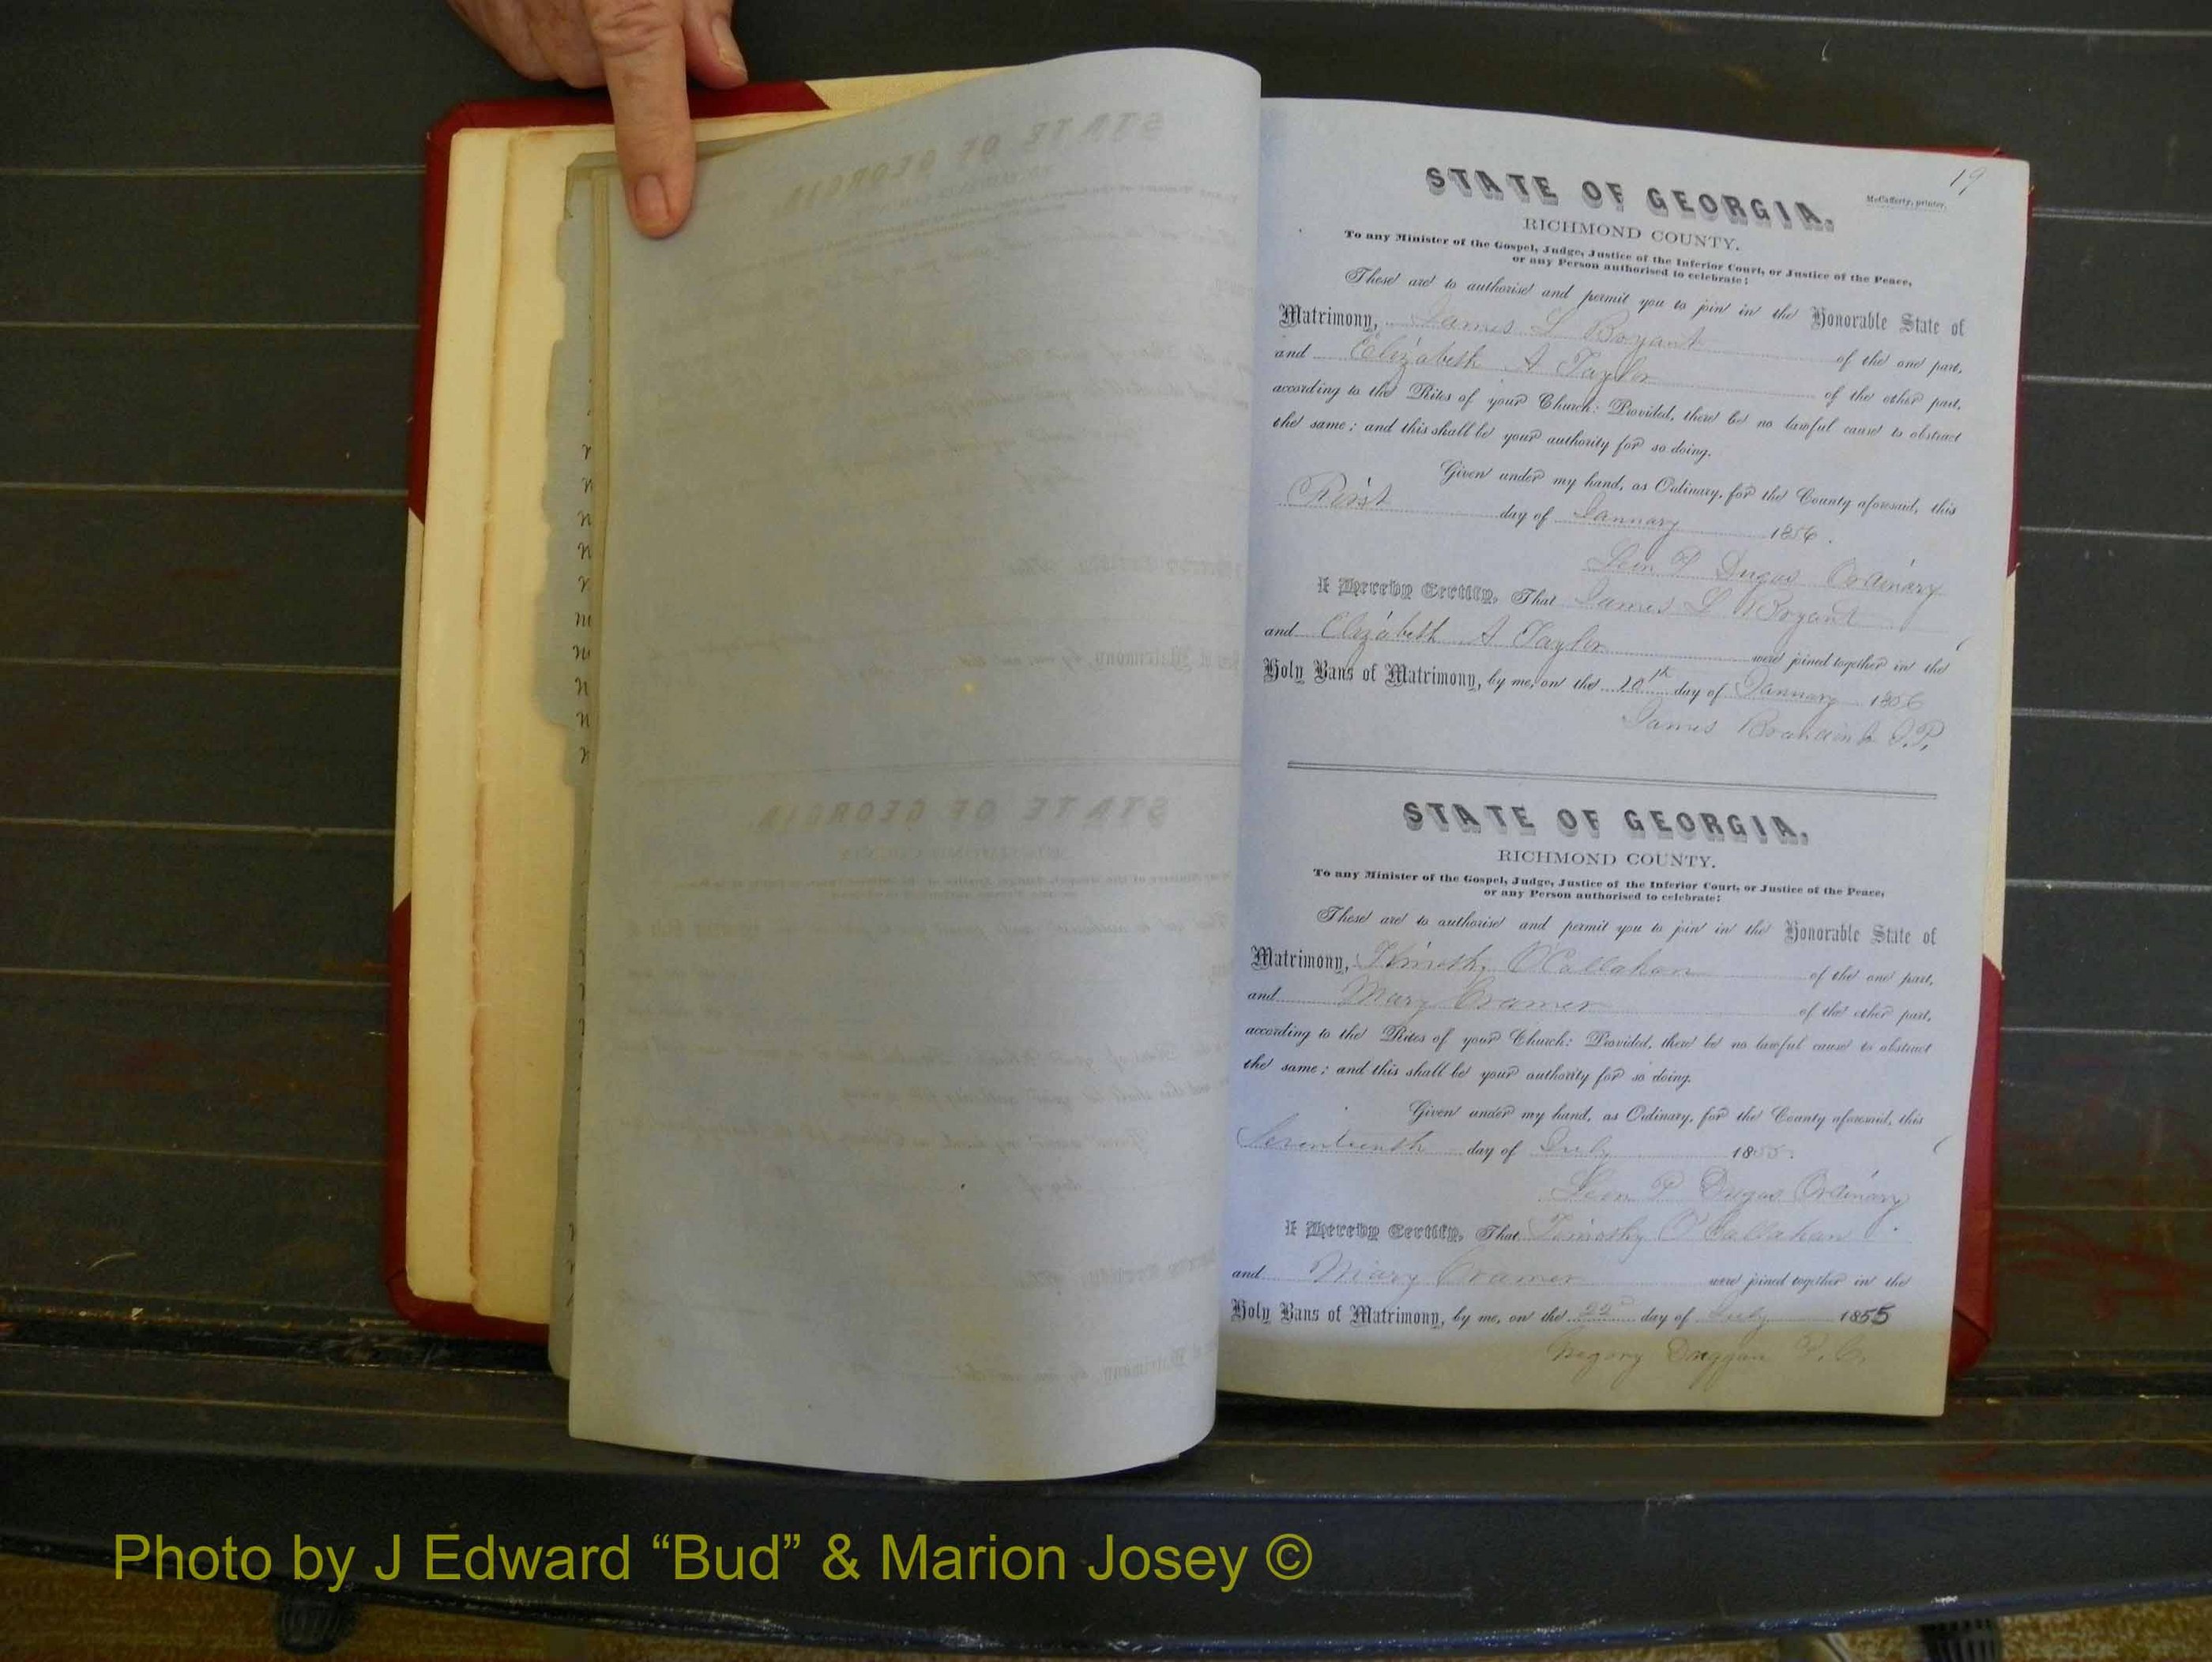 19
McCafferty, printer.
STATE OF GEORGIA,
RICHMOND COUNTY.
To any Minister of the Gospel, Judge, Justice of the Inferior Court, or Justice of the Peace,
or any Person authorised to celebrate:
These are to authorise and permit you to join in the Honorable State of
Matrimony, James L Boyant of the one part,
and Elizabeth A Taylor of the other part,
according to the Rites of your Church: Provided, there be no lawful cause to obstruct
the same; and this shall be your authority for so doing.
Given under my hand, as Ordinary, for the County aforesaid, this
First day of January 1856.
Leon P Dugas Ordinary
I Hereby Certify, That James L Boyant
and Elizabeth A Taylor were joined together in the
Holy Bans of Matrimony, by me, on the 10th day of January 1856
James J.P.
STATE OF GEORGIA,
RICHMOND COUNTY.
To any Minister of the Gospel, Judge, Justice of the Inferior Court, or Justice of the Peace,
or any Person authorised to celebrate:
These are to authorise and permit you to join in the Honorable State of
Matrimony, Timothy O'Callahan of the one part,
and Mary Cramer of the other part,
according to the Rites of your Church: Provided, there be no lawful cause to obstruct
the same; and this shall be your authority for so doing.
Given under my hand, as Ordinary, for the County aforesaid, this
Seventeenth day of July 1855.
Leon P Dugas Ordinary
I Hereby Certify, That Timothy O'Callahan
and Mary Cramer were joined together in the
Holy Bans of Matrimony, by me, on the 22d day of July 1855
Gregory Duggan P.C.
Photo by J Edward “Bud” & Marion Josey ©